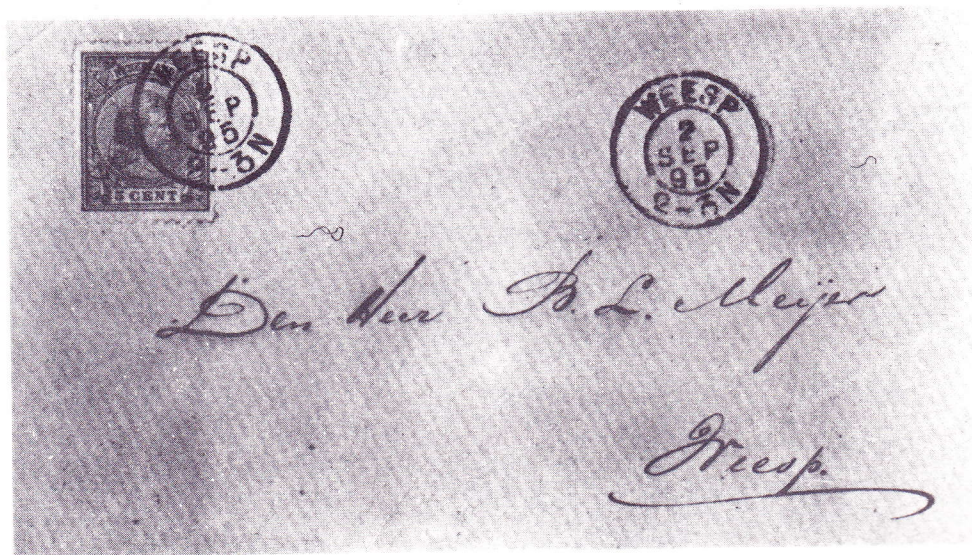 WEESP
2
SEP
95
2-3N
5 CENT
WEESP
2
SEP
95
2-3N
Den Heer B. L. Meijer
Weesp.